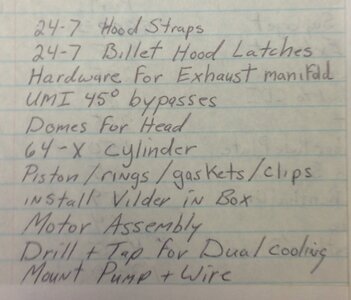 24-7 Hood Straps
24-7 Billet Hood Latches
Hardware For Exhaust manifold
UMI 45° bypasses
Domes for Head
64-X Cylinder
Piston/rings/gaskets/clips
install Vilder in Box
Motor Assembly
Drill + Tap for Dual cooling
Mount Pump + Wire